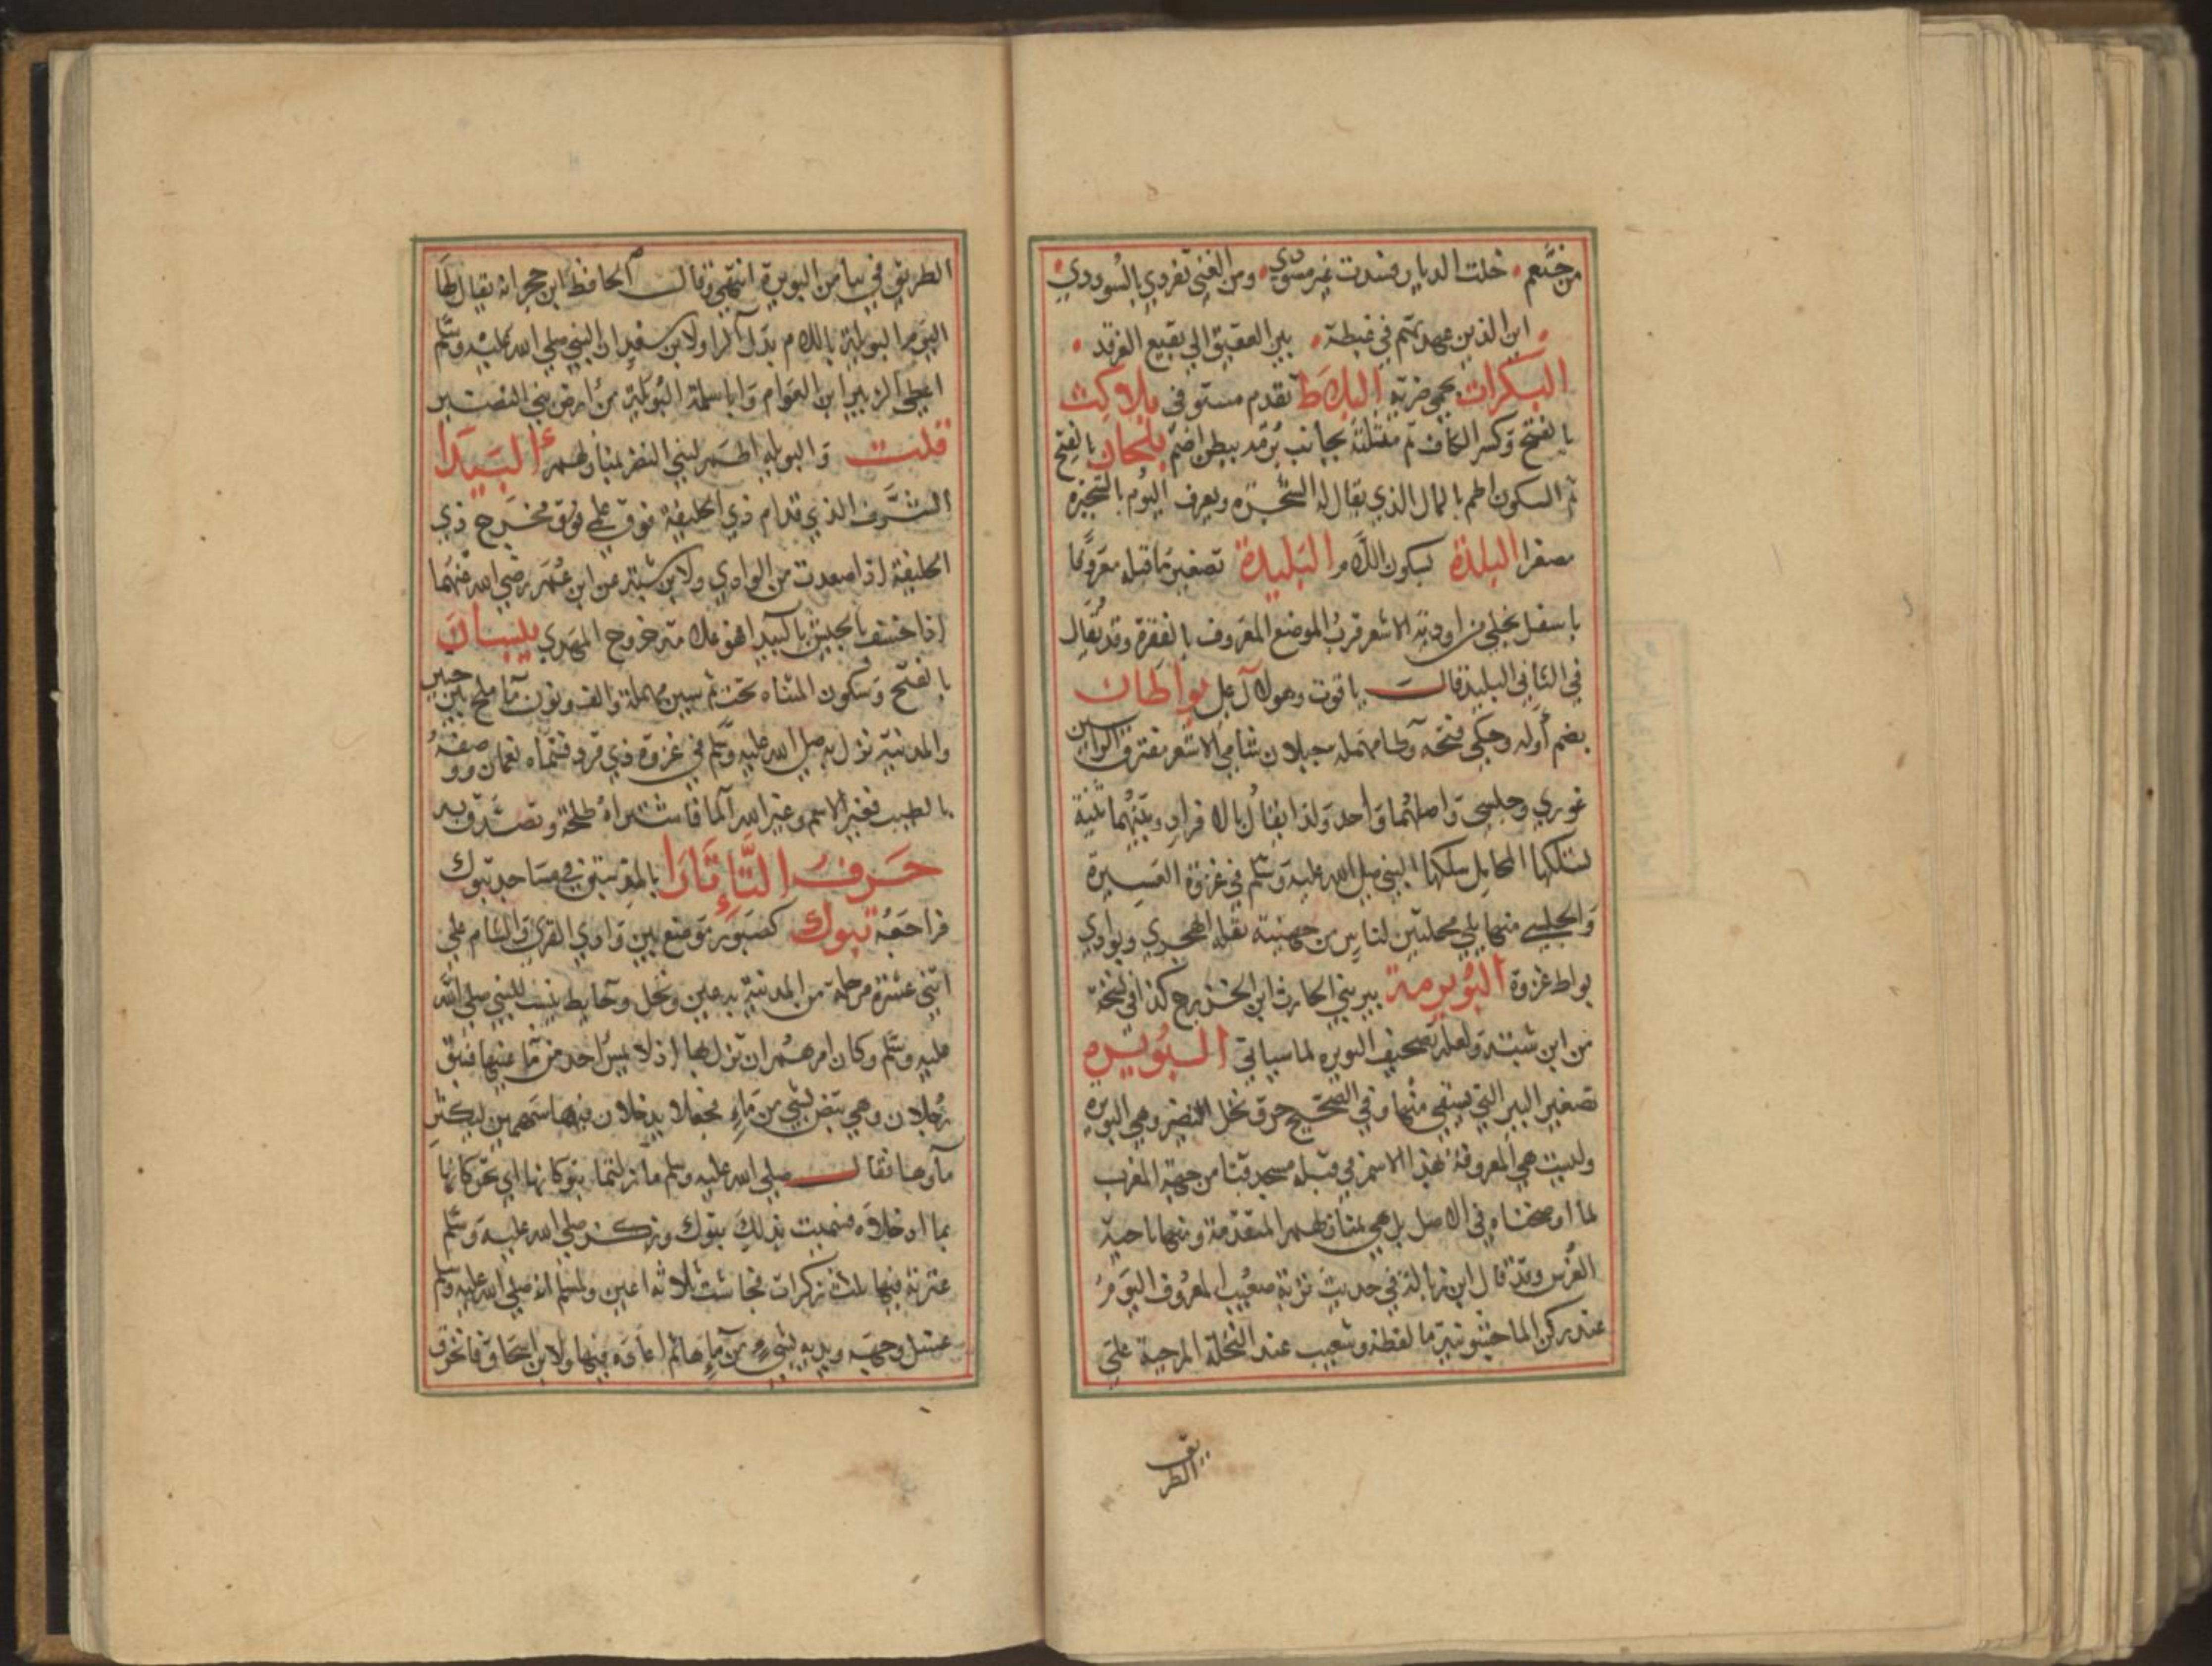 من خثعم خلت الديار فسدت غير مسود ومن العنى تفردي بالسودد
اين الذين عهدتهم في غبطة بين العقيق الي بقيع الغرقد
البكرات بحمي ضرية البلاط تقدم مستوفى بلاكث
بالفتح وكسر الكاف ثم مثلثة بجانب برمد ببطن اضم بلحان بالفتح
ثم السكون اطم بالمال الذي يقال له الشجره ويعرف اليوم بالشجيرة
مصغرا البلدة بسكون اللام والبليدة تصغير ما قبله معروفا
باسفل نخلي من اودية الاشعر قرب الموضع المعروف بالفقرة وقد يقال
في الثاني البليد قالت ياقوت وهو لال علي بواطان
بضم أوله وحكي فتحه وطا مهمله جبلان شامي الاشعر مفترقا الراسين
غوري وجلسي واصلهما واحد ولذا يقال بالافراد وبينهما ثنية
تسلكها المحامل سلكها النبي صلى الله عليه وسلم في غزوة العسيرة
والجلسي منهما يلي محلتين لناس من جهينة نقله الهجري وبوادي
بواط غزوة البويرمة بير بني الحارث ابن الخزرج كذا في نسخة
من ابن شبة ولعله تصحيف البويره لما سياتي البويره
تصغير البير التي يستقي منها وفي الصحيح حرق نخل النضير وهي البويره
وليست هي المعروفة بهذا الاسم في قبلة مسجد قبا من جهة المغرب
لما اوضحناه في الاصل بل هي بمنازلهم المتقدمة ومنها ناحية
الغرس وقد قال ابن زبالة في حديث تربة صعيب المعروف اليوم
عند ركن الماجشونية ما لفظه وشعيب عند النخلة المرجية علي
الطريق
الطريق في بيا من البويرة انتهي وقالت الحافظ ابن حجر انه يقال لها
اليوم البويلة باللام بدل الرا ولابن سعد ان النبي صلى الله عليه وسلم
اعطي الزبير ابن العوام وابا سلمة البويلة من ارض بني النضير
قلت والبويله اطم لبني النضر بمنازلهم البيدا
الشرف الذي قدام ذي الحليفة فوق علي فوق مخرج ذي
الحليفة اذا صعدت من الوادي ولابن شبة عن ابن عمر رضي الله عنهما
اذا خسف بالجيش بالبيدا فهو علامة خروج المهدي بيسان
بالفتح وسكون المثناه تحت ثم سين مهملة والف ونون ما ملح بين خيبر
والمدنية نزل به صلى الله عليه وسلم في غزوة ذي قرد فسماه نعمان ووصفه
بالطيب فغير الاسم وغير الله الما فاشتراه طلحة وتصدق به
حرف التا تارا بالمد سبق في مساجد تبوك
فراجعه تبوك كصبور موضع بين وادي القرى والشام علي
اثني عشرة مرحلة من المدنية به عين ونخل وحايط ينسب للنبي صلى الله
عليه وسلم وكان امرهم ان نزل بها اذ لا يمس احد من ما عينها فسبق
رجلان وهي تبض بشي من ماء فجعلا يدخلان فيها سهمين ليكثر
ماوها فقالت صلى الله عليه وسلم ما زلتما تبوكانها اي تحركانها
بما ادخلاه فسميت بذلك تبوك وركز صلى الله عليه وسلم
عنزته فيها ثلث ركزات فجاشت ثلاثة اعين ولمسلم انه صلى الله عليه وسلم
غسل وجهه ويديه بشيء من ماءها ثم اعاده فيها ولابن اسحاق فانخرق